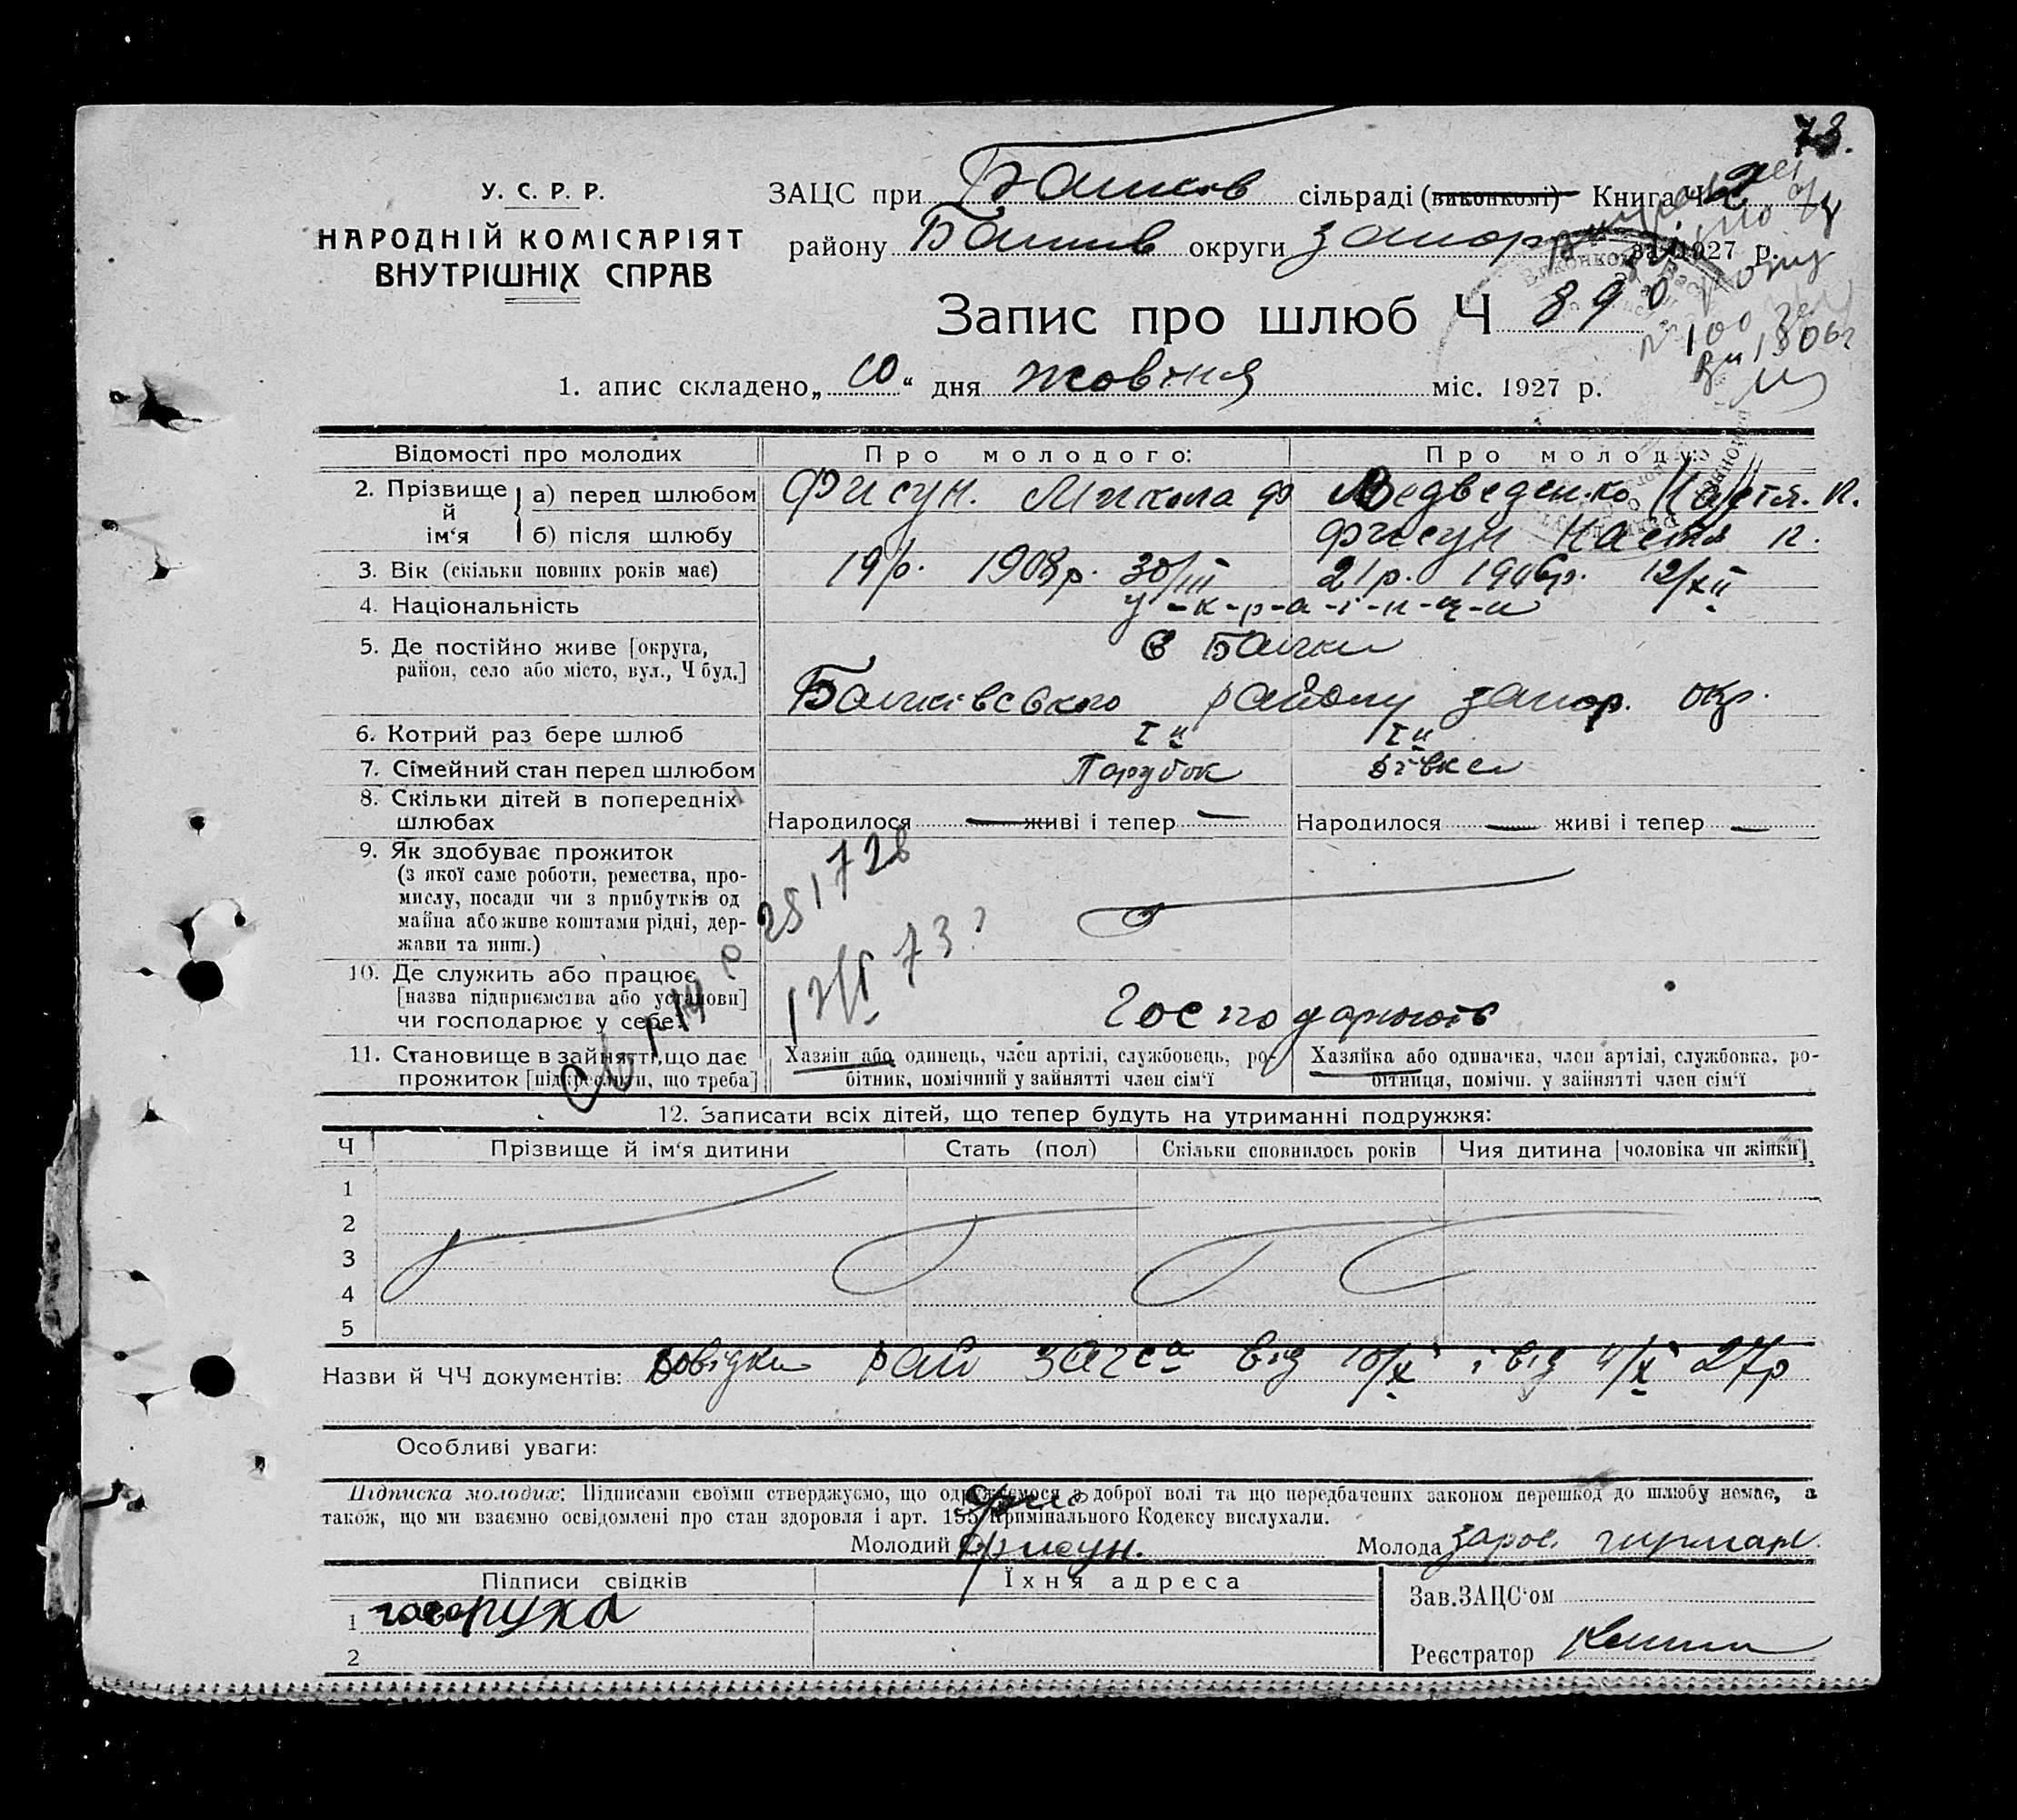 73.
У. С. Р. Р.
НАРОДНІЙ КОМІСАРІЯТ
ВНУТРІШНІХ СПРАВ
ЗАЦС при Балков сільраді (виконкомі) Книга Ч 2
району Балків округи запор за 1927 р.
Запис про шлюб Ч 89
1. апис складено „10“ дня жовтня міс. 1927 р.
Відомості про молодих
Про молодого:
Про молоду:
2. Прізвище й ім‘я
а) перед шлюбом Фисун. Микола Ф Медведенко Настя. П.
б) після шлюбу Фисун Настя П.
3. Вік (скільки повних років має) 19 р. 1908 р. 30/III 21 р. 1906 р. 12/XII
4. Національність у-к-р-а-ї-н-ц-и
5. Де постійно живе [округа, район, село або місто, вул., Ч буд.] с Балки
Балківського району запор. окр.
6. Котрий раз бере шлюб I й I й
7. Сімейний стан перед шлюбом Парубок дівка
8. Скільки дітей в попередніх шлюбах
Народилося — живі і тепер — Народилося — живі і тепер —
9. Як здобуває прожиток
(з якої саме роботи, ремества, про-
мислу, посади чи з прибутків од
майна або живе коштами рідні, дер-
жави та инш.)
10. Де служить або працює
[назва підприємства або установи]
чи господарює у себе: Господарюють
11. Становище в зайнятті, що дає
прожиток [підкреслити, що треба]
Хазяїн або одинець, член артілі, службовець, ро-
бітник, помічний у зайнятті член сім‘ї
Хазяйка або одиначка, член артілі, службовка, ро-
бітниця, помічн. у зайнятті член сім‘ї
12. Записати всіх дітей, що тепер будуть на утриманні подружжя:
Ч Прізвище й ім‘я дитини Стать (пол) Скільки сповнилось років Чия дитина [чоловіка чи жінки]
1
2
3
4
5
Назви й ЧЧ документів: Довідки рай загса від 10/X і від 4/X 27 р
Особливі уваги:
Підписка молодих: Підписами своїми стверджуємо, що одружуємося з доброї волі та що передбачених законом перешкод до шлюбу немає, а
також, що ми взаємно освідомлені про стан здоровля і арт. 155 Кримінального Кодексу вислухали.
Молодий Фисун. Молода
Підписи свідків Їхня адреса
1
2
Зав.ЗАЦС‘ом
Реєстратор